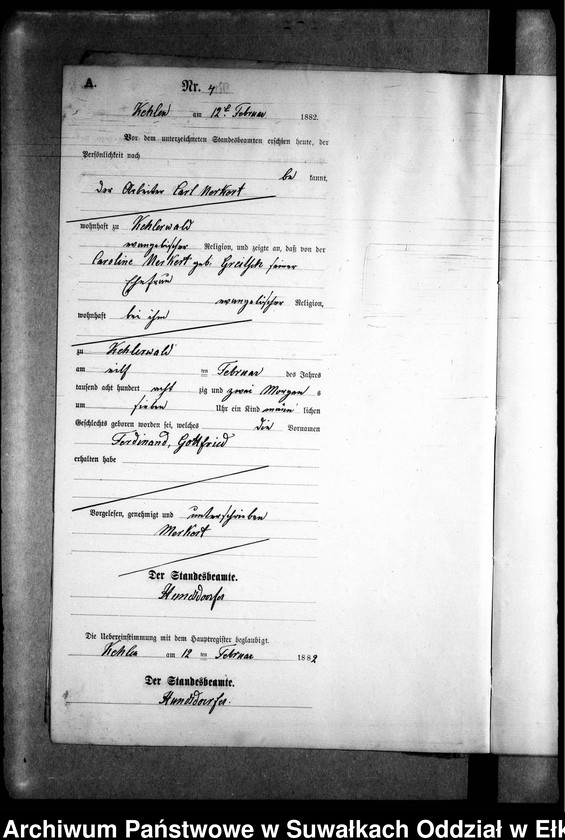 A.
Nr. 4
Kehlen am 12t Februar 1882.
Vor dem unterzeichneten Standesbeamten erschien heute, der
Persönlichkeit nach
be kannt,
der Arbeiter Carl Merkert
wohnhaft zu Kehlerwald
evangelischer Religion, und zeigte an, daß von der
Caroline Merkert geb. seiner
Ehefrau
evangelischer Religion,
wohnhaft bei ihm
zu Kehlerwald
am eilf ten Februar des Jahres
tausend acht hundert acht zig und zwei Morgen s
um sieben Uhr ein Kind männ lichen
Geschlechts geboren worden sei, welches die Vornamen
Ferdinand, Gottfried
erhalten habe
Vorgelesen, genehmigt und unterschrieben
Merkert
Der Standesbeamte.
Hundsdorfer
Die Uebereinstimmung mit dem Hauptregister beglaubigt.
Kehlen am 12 ten Februar 1882
Der Standesbeamte.
Hundsdorfer.
Archiwum Państwowe w Suwałkach Oddział w Ełk